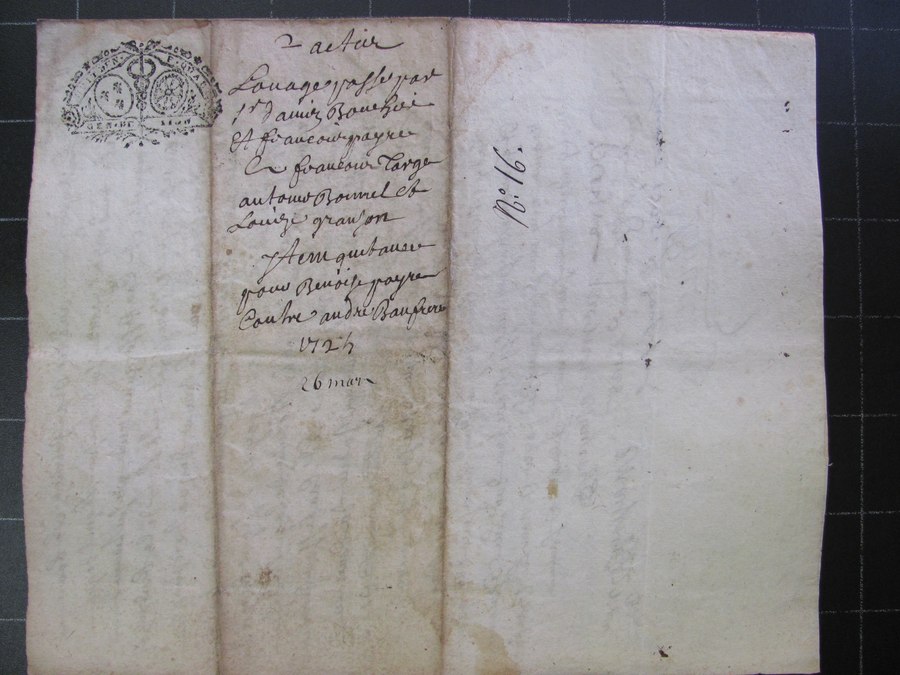 2 actes
Louage passé par
Sr damien Bouchoi
et francois payre
& francois Targe
antoine Bonnel et
Louize granjon
Item quitance
pour Benoiste payre
Contre andre Baufrere
1725
26 mars
N.º 16.
GENE LION